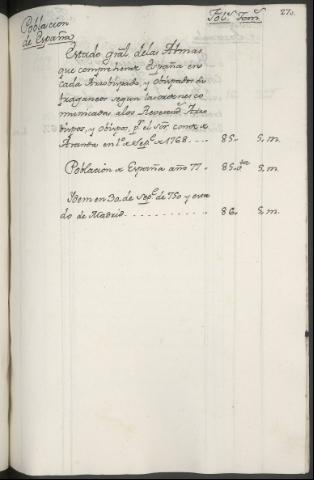 Fol.s Tom.s 273.
Poblacion
de España
Estado gral. delas Almas
que comprehende España en
cada Arzobispado, y obispados su
fraganeos segun las ordenes co
municadas alos Reverend.s Arzo
bispos, y obispos, pr. el Sor. conde de
Aranda en 1o. de Sepe. de 1768... 85.. 5. m.
Poblacion de España año 77. 85. 5. m.
Idem en 30. de Sepe. de 750 y esta
do de Madrid........... 86. 5. m.